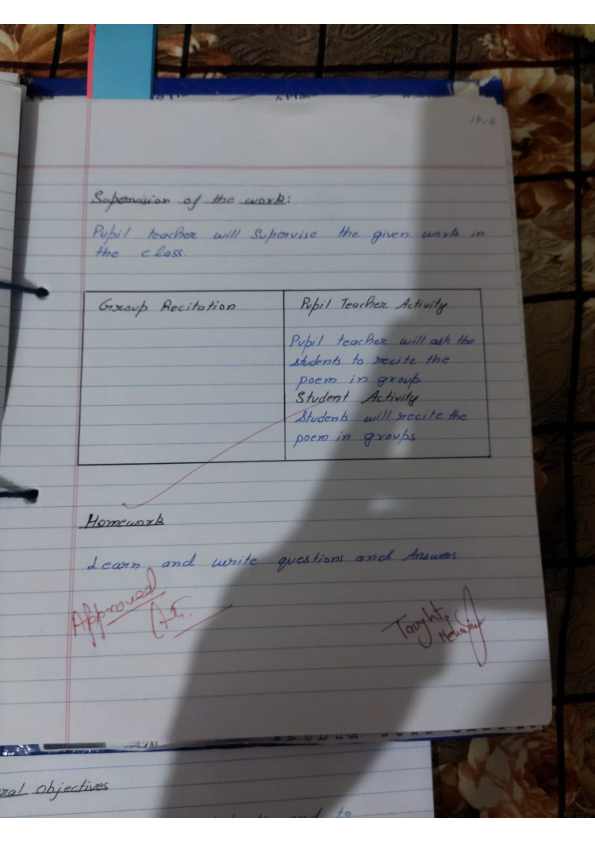 Supervision of the work:
Pupil teacher will Supervise the given work in
the class.
Group Recitation
Pupil Teacher Activity
Pupil teacher will ask the
students to recite the
poem in group
Student Activity
Students will recite the
poem in groups
Homework
Learn and write questions and Answers
Approved
Taught
ral Objectives